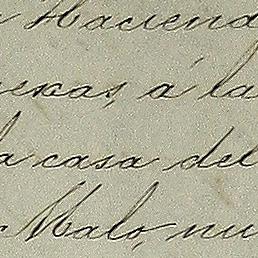 Hacienda
nexas, á la
la casa del
Malo, nu